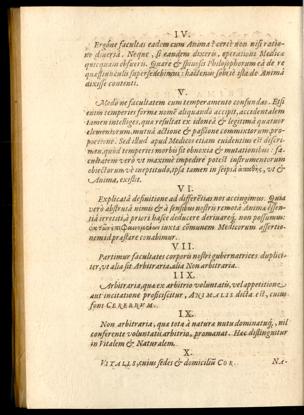 IV.
Ergóne facultas eadem cum Anima? certè non nisi ratio-
ne diversa. Neque, si eandem dixeris, operationi Medicæ
quicquam obfuerit. Quare & ipsius Philosophorum eâ de re
hactenus sobriè ista de Animâ
dixisse contenti.
V.
Medio ne facultatem cum temperamento confundas. Etsi
enim temperies forma nomẽ aliquando accepit, accidentalem
tamen intelliges, quæ resultat ex idoneâ & legitimâ quatuor
elementorum, mutuâ actione & passione commixtorum, pro-
portione. Sed illud apud Medicos etiam evidentius est discri-
men, quòd temperies morbis sit obnoxia & mutationibus: fa-
cultatem verò ut maximè impedire potest instrumentorum
objectorum vè ineptitudo, ipsa tamen in seipsâ ut &
Anima, existit.
VI.
Explicatâ definitione ad differẽtias nos accingimus. Quia
verò abstrusâ nimis & à sensibus nostris remotâ Anima essen-
tiâ à priori hasce deducere derivareque non possumus:
iuxta cõmunem Medicorum assertio-
nem id præstare conabimur.
VII.
Partimur facultates corporis nostri gubernatrices dupliciter,
ut alia sit Arbitraria, alia Non arbitraria.
IIX.
Arbitraria, quæ ex arbitrio voluntatis, vel appetitione
aut incitatione proficiscitur, ANIMALIS dicta est, cuius
fons CEREBRUM.
IX.
Non arbitraria, quæ tota à naturæ nutu dominatuque, nil
conferente voluntatis arbitrio, promanat. Hæc distinguitur
in Vitalem & Naturalem.
X.
VITALIS, cuius sedes & domicilium COR.
NA-